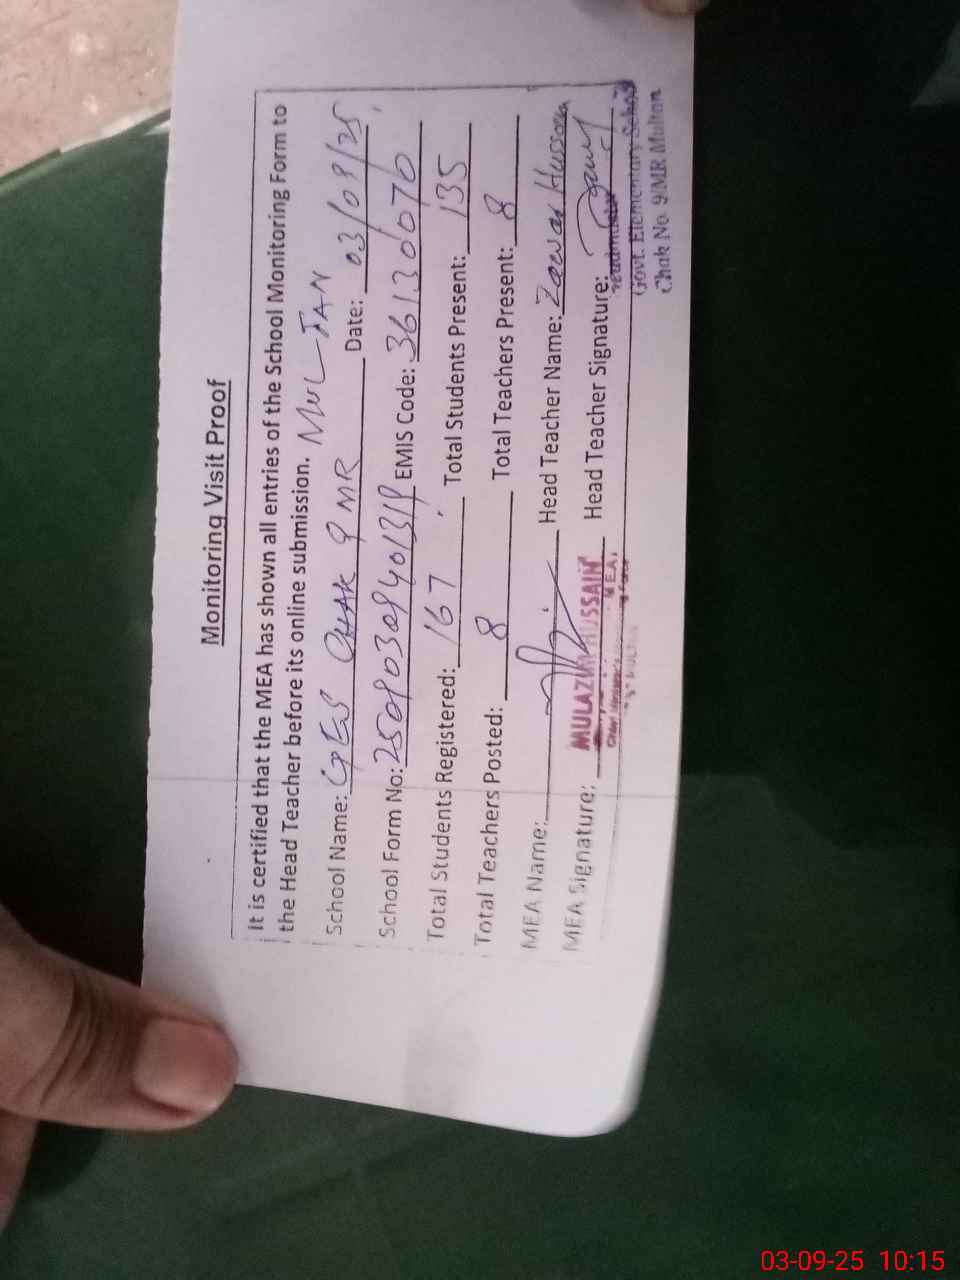 Monitoring Visit Proof
It is certified that the MEA has shown all entries of the School Monitoring Form to
the Head Teacher before its online submission. MULTAN
School Name: GES CHAK 9 MR Date: 03/09/25
School Form No: EMIS Code: 36130070
Total Students Registered: 167 Total Students Present: 135
Total Teachers Posted: 8 Total Teachers Present: 8
MEA Name: Head Teacher Name: Zawar Hussain
MEA Signature: MULAZIM HUSSAIN Head Teacher Signature:
M.E.A.
Headmaster
Govt. Elementary School
Chak No. 9/MR Multan
03-09-25 10:15